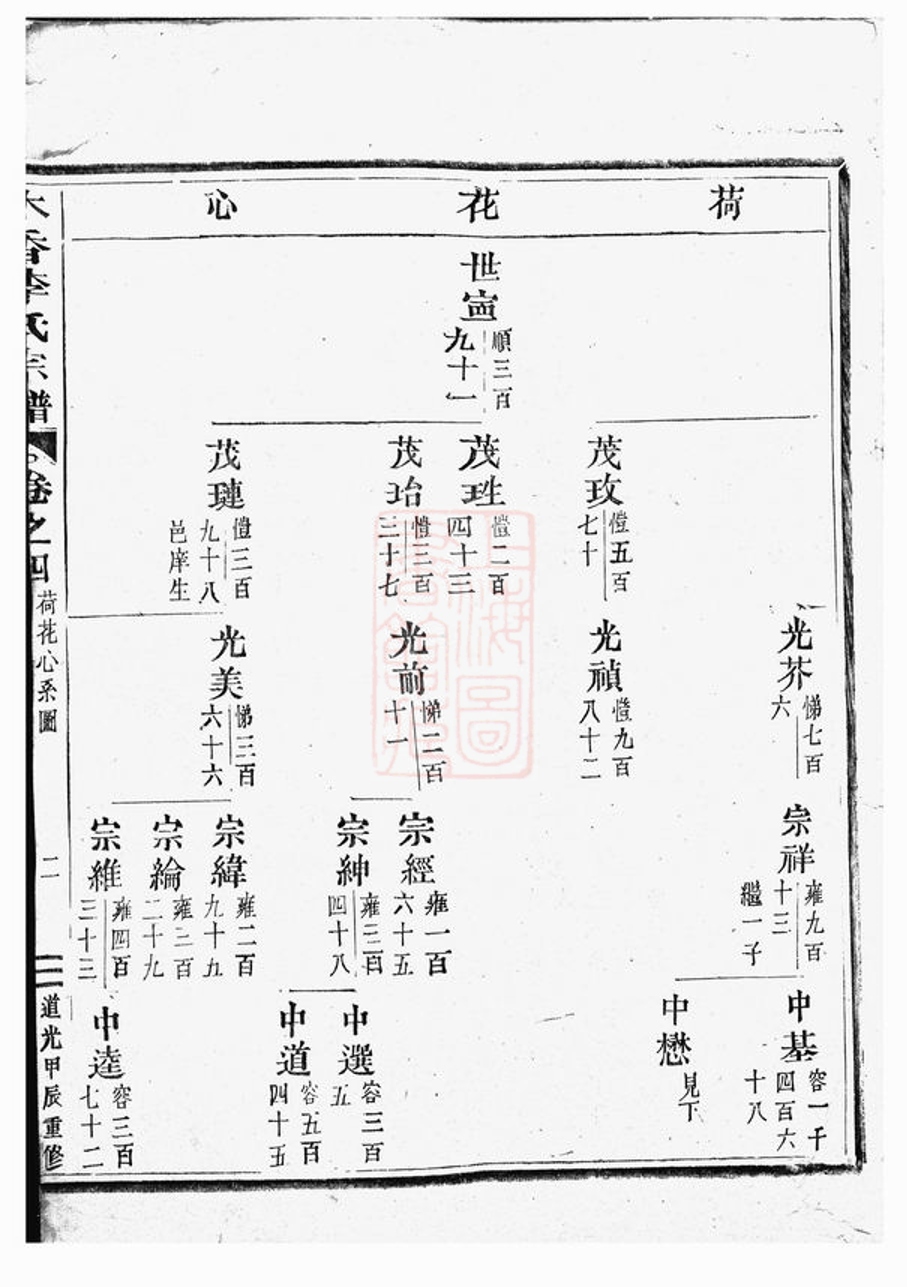 荷花心
世寍
順三百
九十一
茂玫
愷五百
七十
茂珄
愷二百
四十三
茂珆
愷三百
三十七
茂璉
愷三百
九十八
邑庠生
光芥
悌七百
六
光禎
愷九百
八十二
光前
悌二百
十一
光美
悌三百
六十六
宗祥
雍九百
十三
繼一子
宗經
雍一百
六十五
宗紳
雍三百
四十八
宗緯
雍二百
九十五
宗綸
雍三百
二十九
宗維
雍四百
三十三
中基
容一千
四百六
十八
中懋
見下
中選
容三百
五
中道
容五百
四十五
中逵
容三百
七十二
香李氏宗譜
卷之四
荷花心系圖
二
道光甲辰重修
上海圖書館藏